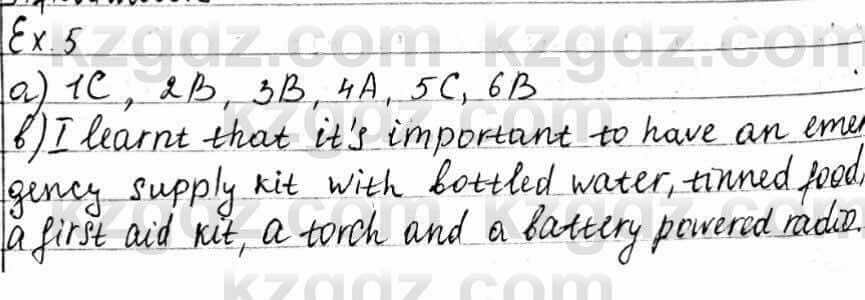 Ex. 5
a) 1C, 2B, 3B, 4A, 5C, 6B
b) I learnt that it's important to have an emer
gency supply kit with bottled water, tinned food,
a first aid kit, a torch and a battery powered radio.
kzgdz.com kzgdz.com
kzgdz.com kzgdz.com
kzgdz.com kzgdz.com
kzgdz.com kzgdz.com